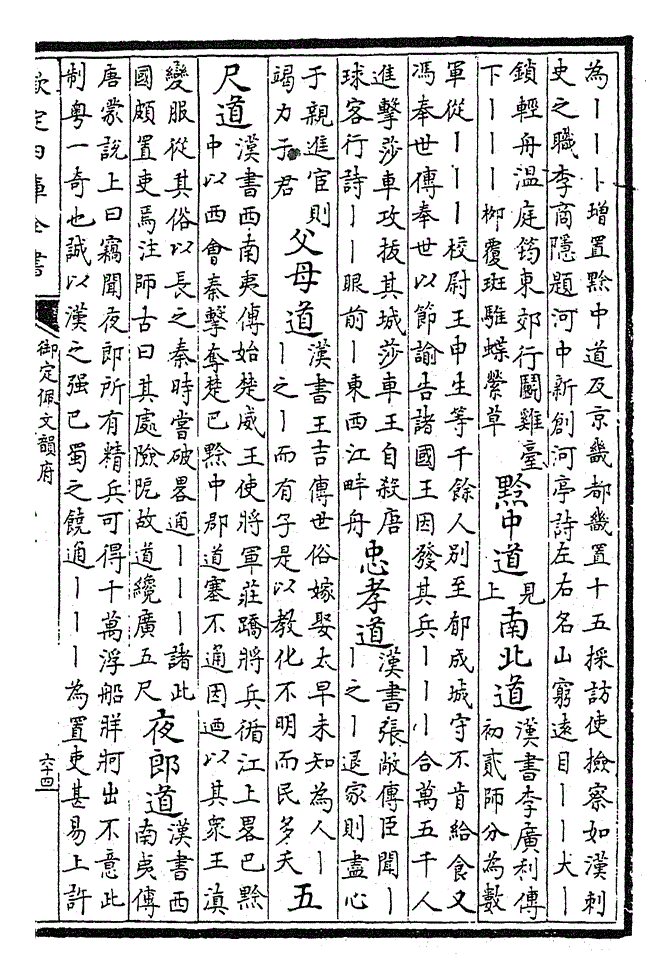 為丨丨丨增置黔中道及京畿都畿置十五採訪使檢察如漢刺
史之職李商隱題河中新創河亭詩左右名山窮遠目丨丨大丨
鎖輕舟温庭筠東郊行鬭雞臺
下丨丨丨栁覆斑騅蝶縈草
黔中道
見
上
南北道
漢書李廣利傳
初貳師分為數
軍從丨丨丨校尉王申生等千餘人别至郁成城守不肯給食又
馮奉世傳奉世以節諭告諸國王因發其兵丨丨丨合萬五千人
進擊莎車攻拔其城莎車王自殺唐
球客行詩丨丨眼前丨東西江畔舟
忠孝道
漢書張敞傳臣聞丨
丨之丨退家則盡心
于親進宦則
竭力于君
父母道
漢書王吉傳世俗嫁娶太早未知為人丨
丨之丨而有子是以教化不明而民多夭
五
尺道
漢書西南夷傳始楚威王使將軍莊蹻將兵循江上畧巴黔
中以西會秦擊奪楚巴黔中郡道塞不通因廼以其衆王滇
變服從其俗以長之秦時嘗破畧通丨丨丨諸此
國頗置吏焉注師古曰其處險阨故道纔廣五尺
夜郎道
漢書西
南夷傳
唐蒙説上曰竊聞夜郎所有精兵可得十萬浮船牂牁出不意此
制粤一奇也誠以漢之强巴蜀之饒通丨丨丨為置吏甚易上許
欽定四庫全書
御定佩文韻府
六十四